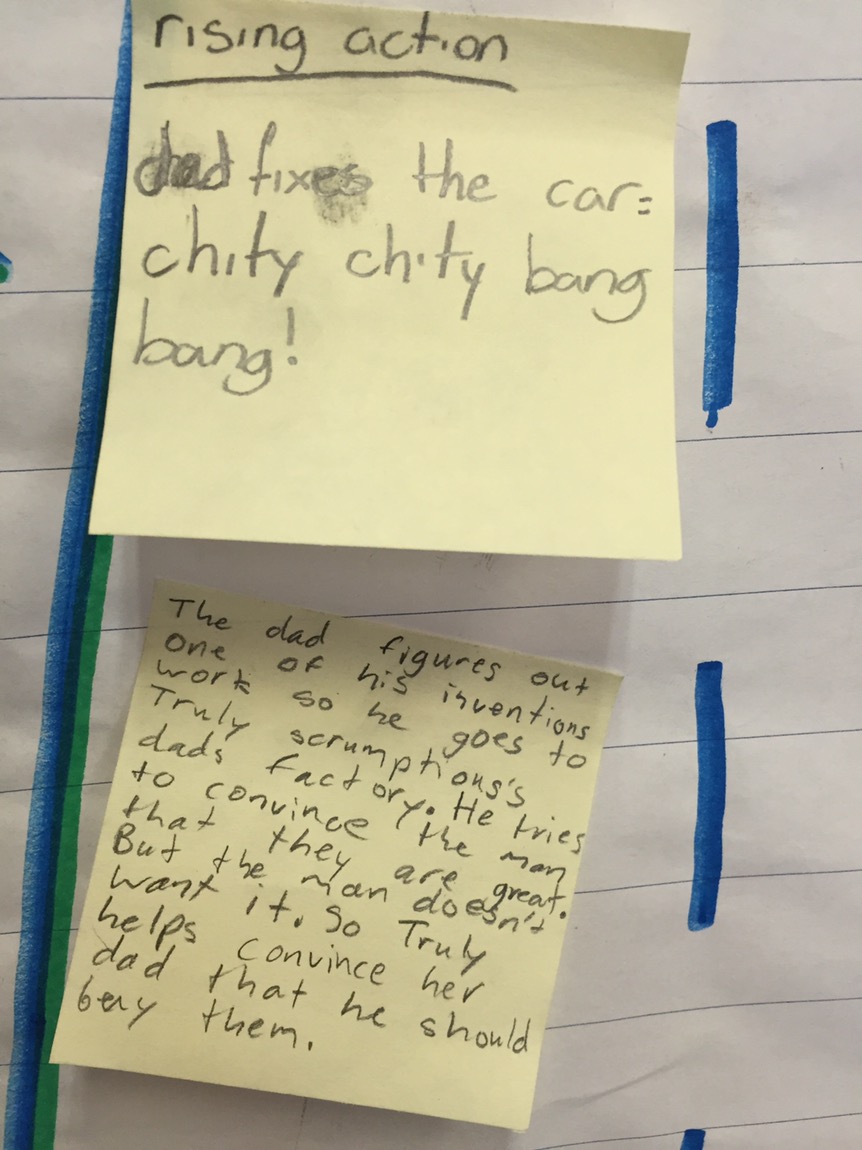 rising action
dad fixes the car=
chity chity bang
bang!
The dad figures out
one of his inventions
work so he goes to
Truly scrumptious's
dads factory. He tries
to convince the man
that they are great.
But the man doesn't
want it. So Truly
helps convince her
dad that he should
buy them.